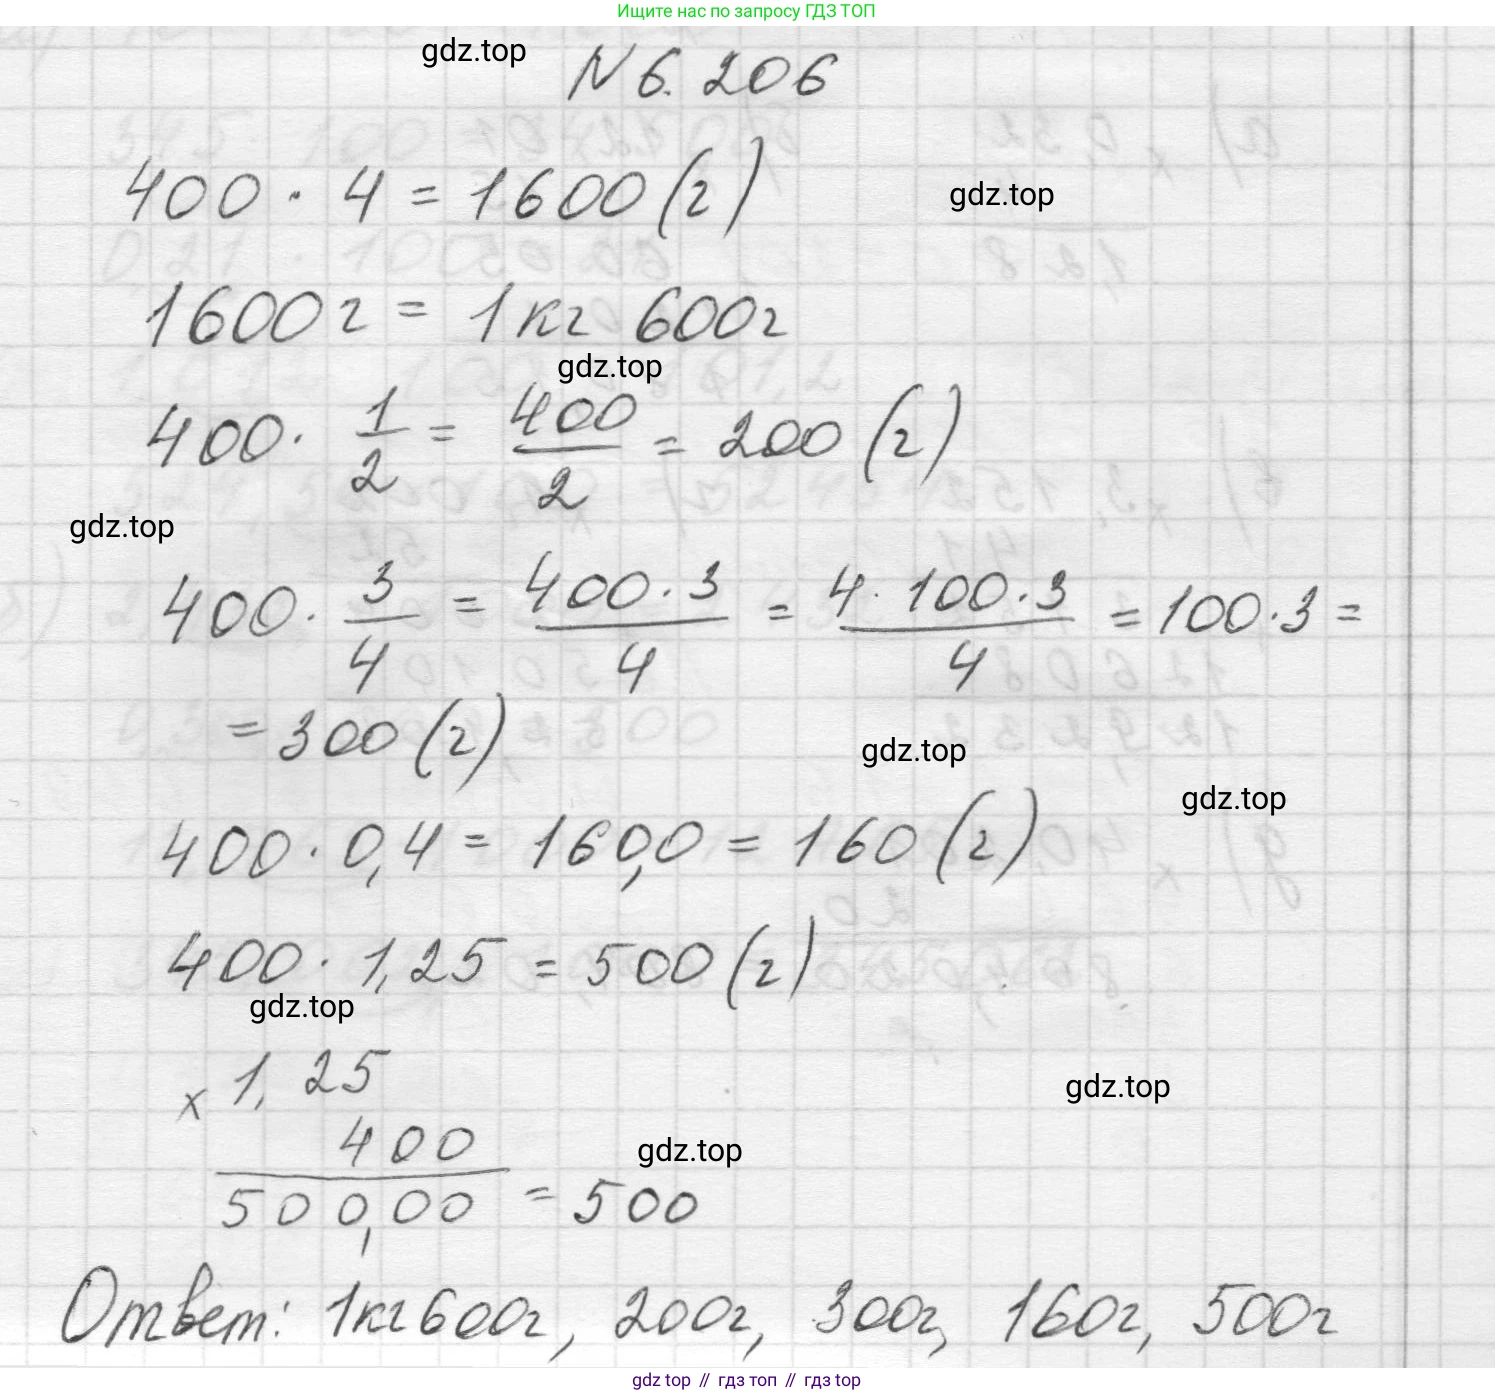 Ищите нас по запросу ГДЗ ТОП
gdz.top
N 6.206
400 · 4 = 1600 (г)
gdz.top
1600 г = 1 кг 600 г
gdz.top
400 · 1/2 = 400/2 = 200 (г)
gdz.top
400 · 3/4 = 400 · 3/4 = 4 · 100 · 3/4 = 100 · 3 =
= 300 (г)
gdz.top
gdz.top
400 · 0,4 = 160,0 = 160 (г)
400 · 1,25 = 500 (г)
gdz.top
× 1,25
gdz.top
400
gdz.top
500,00 = 500
Ответ: 1 кг 600 г, 200 г, 300 г, 160 г, 500 г
gdz top // гдз топ // гдз top